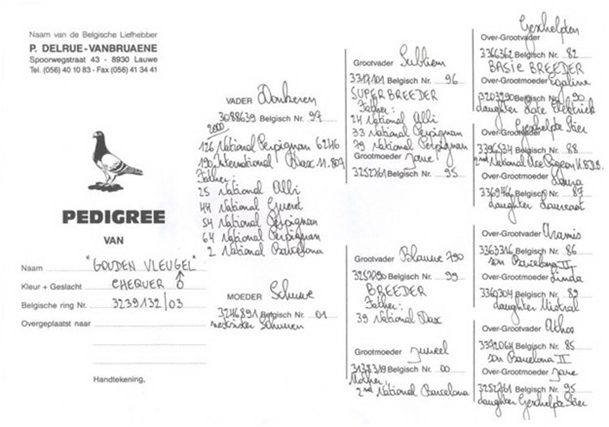 Naam van de Belgische Liefhebber
P. DELRUE-VANBRUAENE
Spoorwegstraat 43 - 8930 Lauwe
Tel. (056) 40 10 83 - Fax (056) 41 34 41
PEDIGREE
VAN
Naam "GOUDEN VLEUGEL"
Kleur + Geslacht CHEQUER
Belgische ring Nr. 3239132/03
Overgeplaatst naar
Handtekening,
VADER Donkeren
3088639 Belgisch Nr. 97
2000
126 National Perpignan 6246
190 International Dax 11.807
Father:
25 National Albi
44 National
54 National Perpignan
64 National Perpignan
2 National Barcelona
MOEDER Schuwe
3246891 Belgisch Nr. 01
nestzuster Schuwen
Grootvader Subliem
Belgisch Nr. 96
SUPERBREEDER
Father:
24 National Albi
33 National Perpignan
79 National Perpignan
Grootmoeder Jane
3252761 Belgisch Nr. 95
Grootvader Blauwe 790
3257790 Belgisch Nr. 99
BREEDER
Father:
39 National Dax
Grootmoeder Juweel
3138319 Belgisch Nr. 00
Mother:
2nd National Barcelona
Geschelpten
Over-Grootvader
3366362 Belgisch Nr. 82
BASIC BREEDER
Over-Grootmoeder
3203290 Belgisch Nr. 90
daughter Late
Geschelpte
Over-Grootvader
3396534 Belgisch Nr. 88
2nd National Ace Pigeon K.B.D.B.
Over-Grootmoeder
Belgisch Nr. 87
daughter Laureaat
Over-Grootvader Aramis
3363316 Belgisch Nr. 86
son Barcelona II
Over-Grootmoeder Linda
3360304 Belgisch Nr. 89
daughter Mistral
Over-Grootvader Athos
3372064 Belgisch Nr. 85
son Barcelona II
Over-Grootmoeder Jane
3252761 Belgisch Nr. 95
daughter Geschelpte